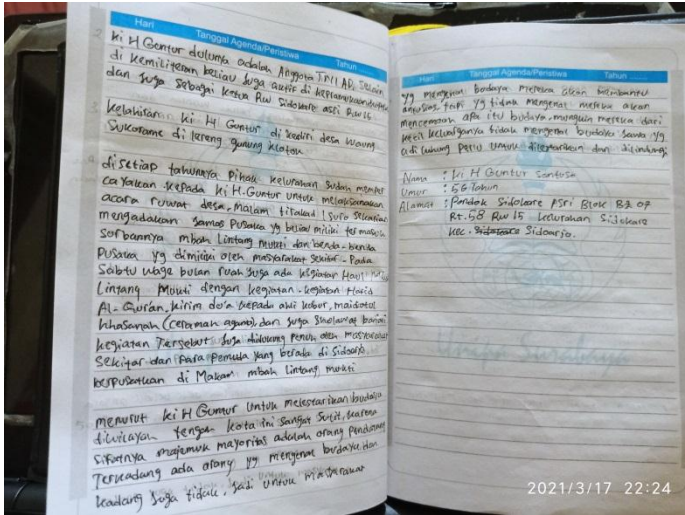 Hari Tanggal Agenda/Peristiwa Tahun
Ki H Guntur dulunya adalah Anggota TNI AD. Selain
di kemiliteran beliau juga aktif di
dan juga sebagai ketua RW Sidokare asri RW 15.
Kelahiran Ki H Guntur di kediri desa
Sukorame di lereng gunung klotok
disetiap tahunnya Pihak kelurahan sudah memper
cayakan kepada Ki H. Guntur untuk melaksanakan
acara ruwat desa, malam tirakad 1 Suro sekalian
mengadakan Jamas Pusaka yg beliau miliki termasuk
Sorbannya mbah Lintang mukti dan benda-benda
Pusaka yg dimiliki oleh masyarakat sekitar. Pada
Sabtu wage bulan ruah juga ada kegiatan Haul
Lintang Mukti dengan kegiatan-kegiatan
Al-Qur'an, kirim do'a kepada ahli kubur, maidotul
khasanah (ceramah agama), dan juga Sholawat banjari
kegiatan Tersebut juga didukung penuh oleh masyarakat
Sekitar dan para Pemuda yang berada di Sidoarjo.
berpusatkan di Makam mbah Lintang mukti
menurut Ki H Guntur untuk melestarikan budaya
diwilayah tengah kota ini sangat sulit, karena
sifatnya majemuk mayoritas adalah orang pendatang
Terkadang ada orang yg mengenal budaya dan
kadang juga tidak. Jadi untuk masyarakat
Hari Tanggal Agenda/Peristiwa Tahun
yg mengenal budaya mereka akan membantu
antusias tapi yg tidak mengenal mereka akan
mencemooh apa itu budaya. mungkin mereka dari
kecil keluarganya tidak mengenal budaya Jawa yg
adi luhung perlu untuk dilestarikan dan dilindungi
Nama : Ki H Guntur Santoso
Umur : 56 Tahun
Alamat : Pondok Sidokare Asri Blok
Rt. 58 RW 15 kelurahan Sidokare
kec. Sidoarjo.
Unipa Surabaya
2021/3/17 22:24